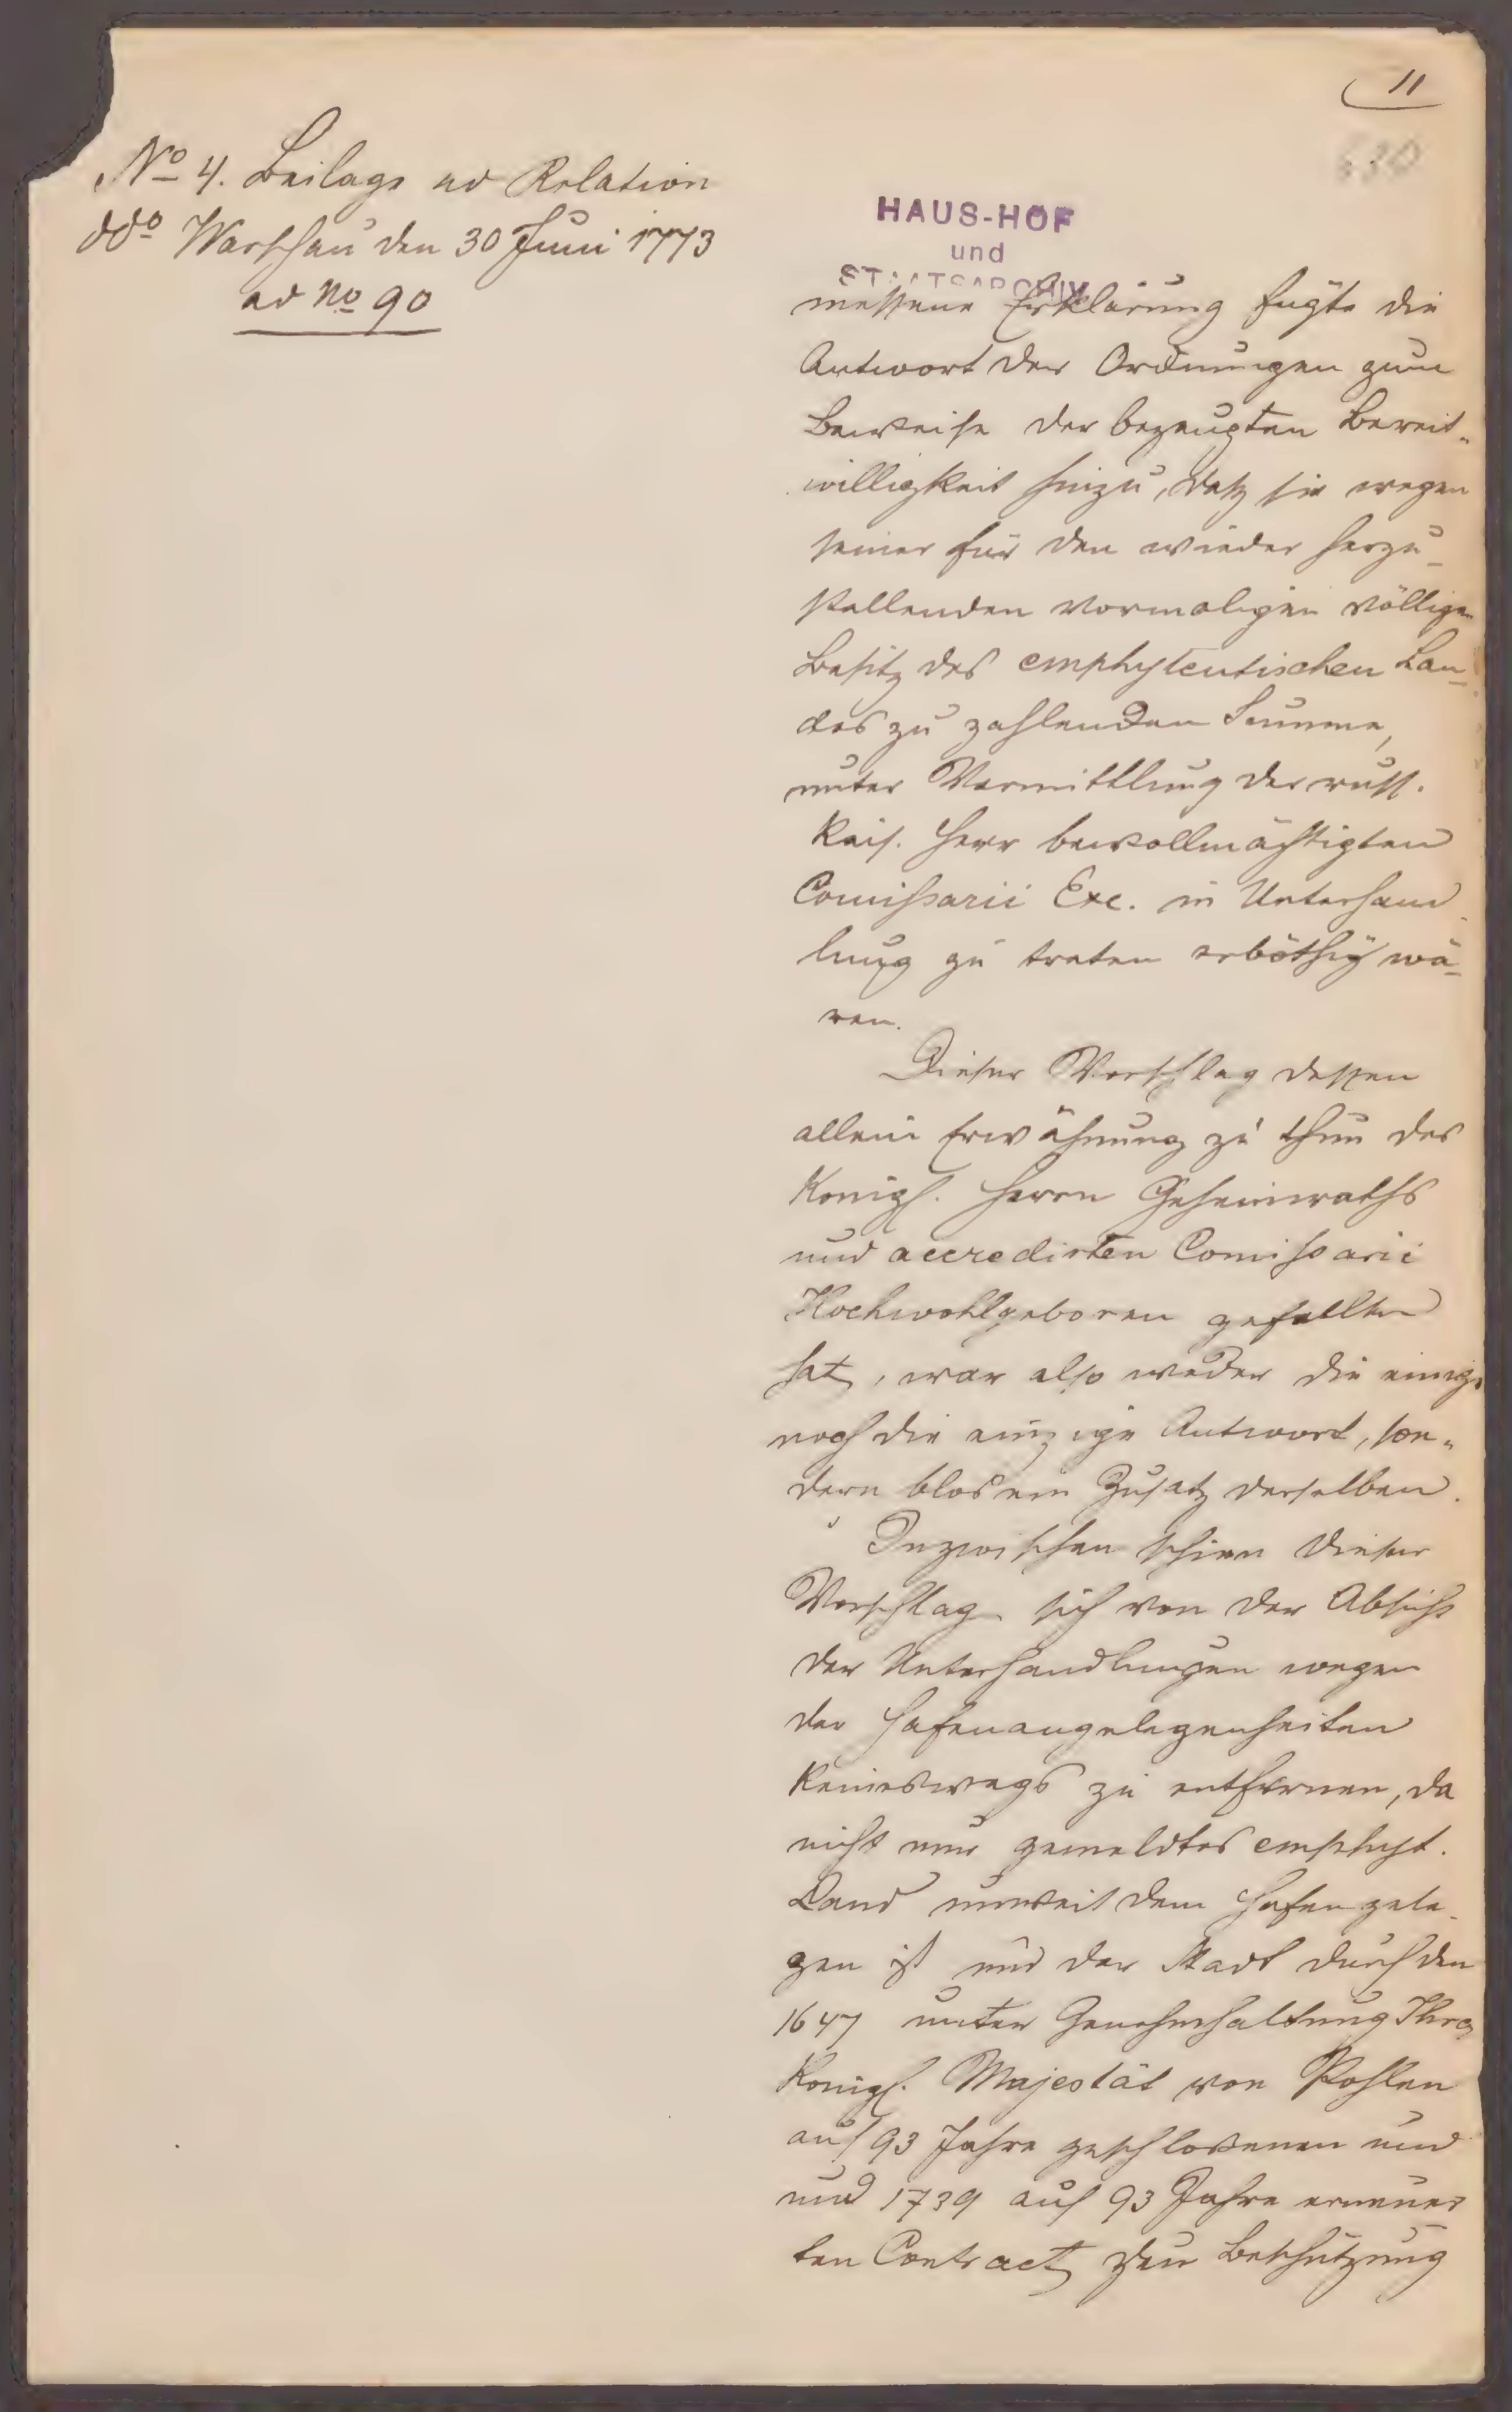 11
630
No 4. Beilage ad Relation
ddo Warschau den 30 Juni 1773
ad No 90
HAUS-HOF
und
STAATSARCHIV
messene Erklärung fügte die
Antwort der Ordnungen zum
Beweise der bezeugten Bereit„
willigkeit hinzu, daß sie wegen
seiner für den wieder herzu-
stellenden vormaligen völligen
Besitz des emphyteutischen Lan-
des zu zahlenden Summe,
unter Vermittlung des russ.
Kais. Herr bevollmächtigten
Comißarii Exc. in Unterhand-
lung zu treten erböthig wä-
ren.
Dieser Vorschlag dessen
allein Erwähnung zu thun des
Königl. Herrn Geheimraths
und accredirten Comißarii
Hochwohlgeboren gefallen
hat, war also weder die einige
noch die einzige Antwort, son„
dern blos ein Zusatz derselben.
Inzwischen schien dieser
Vorschlag sich von der Absicht
der Unterhandlungen wegen
der Hafenangelegenheiten
keineswegs zu entfernen, da
nicht nur gemeldtes emphyt.
Land unweit dem Hafen gele-
gen ist und der Stadt durch den
1647 unter Genehmhaltung Ihro
Königl. Majestät von Pohlen
auf 93 Jahre geschloßenen und
und 1739 auf 93 Jahre erneuer
ten Contract zur Beschützung